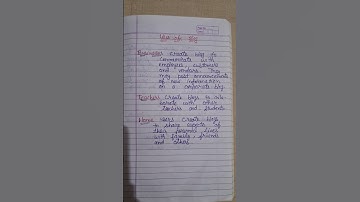 Use of Blog
Businesses Create blog to
communicate with
employees, customers
and vendors. They
may post announcements
of new information
on a corporate blog.
Teachers Create blogs to colla-
borate with other
teachers and students
Home Users Create blogs
to share aspects of
their personal lives
with family, friends
and others.